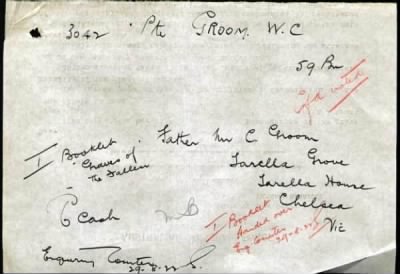 3042 Pte GROOM. W.C
59 Bn
I Booklet
"Graves of
the Fallen"
Father Mr C Groom
Tarella Grove
Tarella House
Chelsea
Vic
C Cash
MB
I Booklet
handed over
Enq Counter
29-8-22
Enquiry Counter
29-8-22